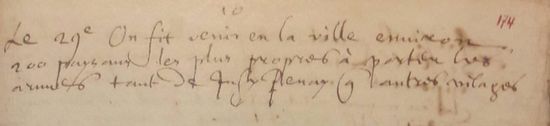 174
Le 29e On fit venir en la ville environ
200 paysans les plus propres à porter les
armes tant de Jussy que autres vilages